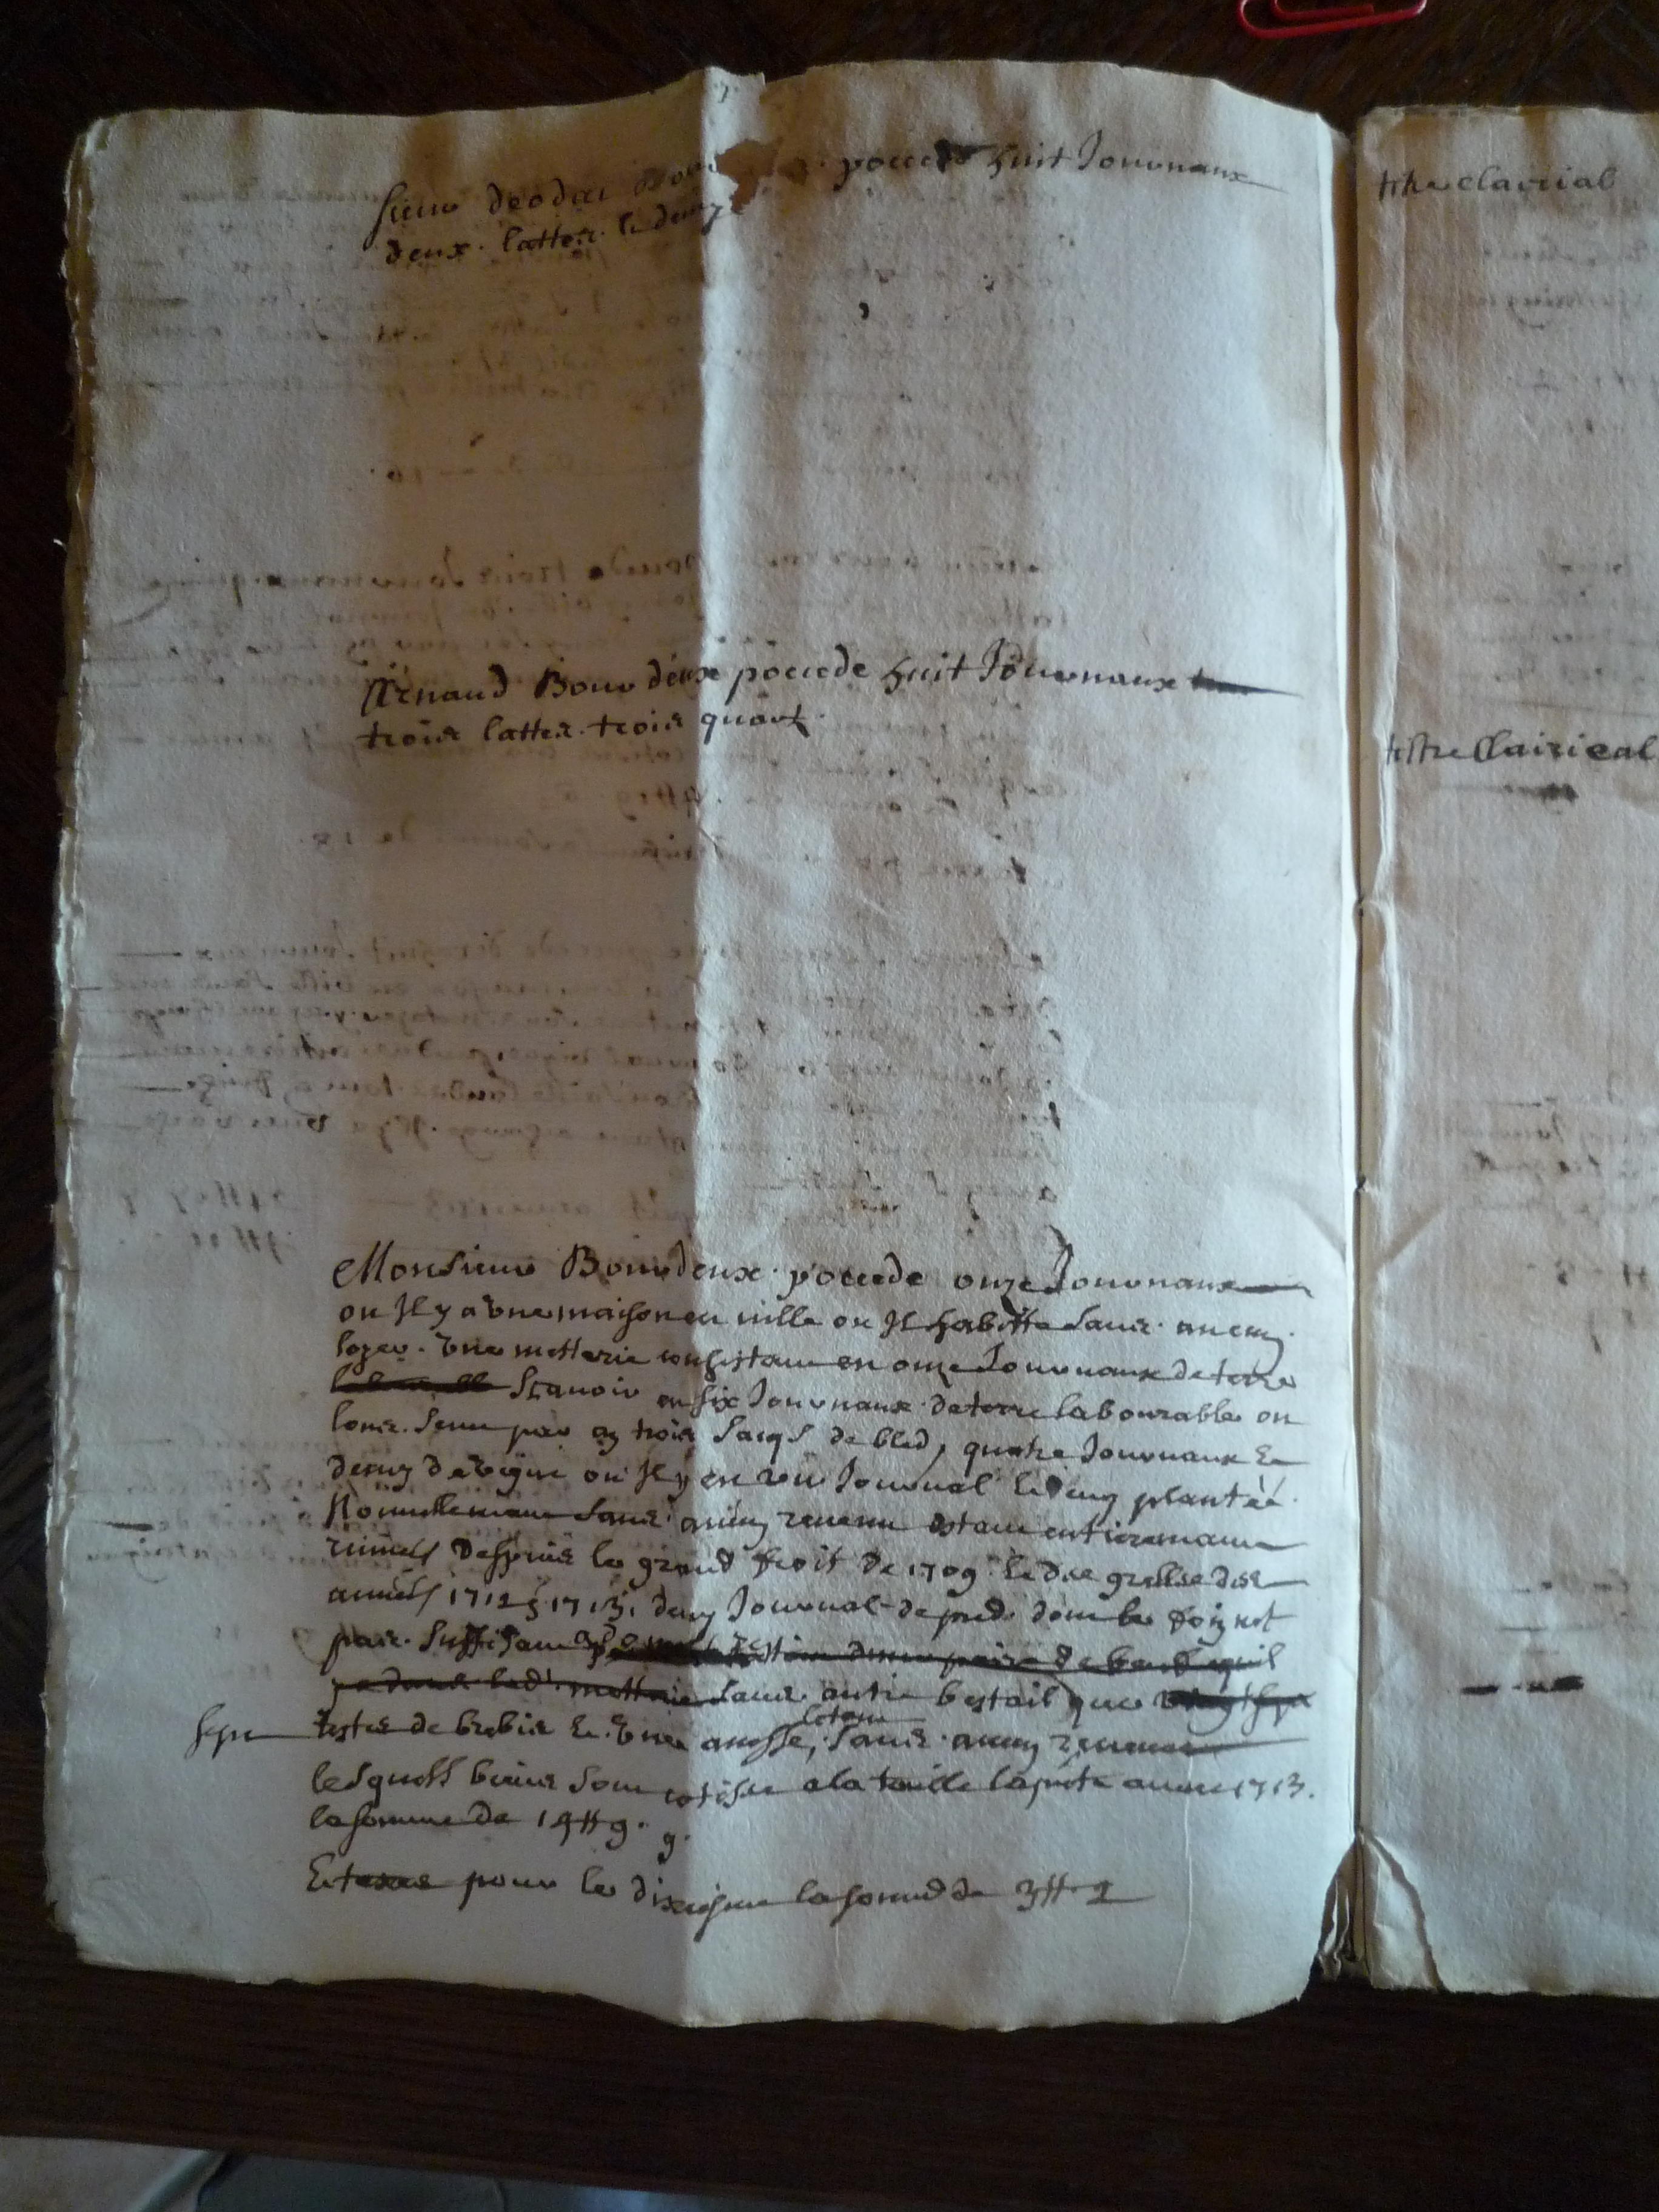 sieur deodet pocede huit Jouvnaux
deux lattes le demy
Arnaud Bourdeux pocede huit Jouvnaux
trois lattes trois quart
Monsieur Bourdeux pocede onze Jouvnaux
ou Jl y a vne maison en ville ou Jl habitte sans aucung
loyer. vne metterie consistant en onze Jouvnaux de terre
scauoir en six Jouvnaux de terre labourable ou
lon seme par an trois sacqs de bled, quatre Jouvnaux Et
demy de vigne ou Jl y en a vn Jouvnal le demy plantéé
Nouuellemant sans aucung reuenu estant entieremant
ruinés despuis le grand froit de 1709 les gresles des
années 1712 & 1713, demy Jouvnal de pred dont le foin est
pas suffisant
sans autre bestail que
sept testes de brebis Et vne anesse, sans aucung
lesquels biens sont cotises a la taille la pnte annee 1713.
la somme de 19ʰ 9. 9.
Et taxes pour le dixiesme la somme de 3ʰ 2
titre clarical
tittre Clairical